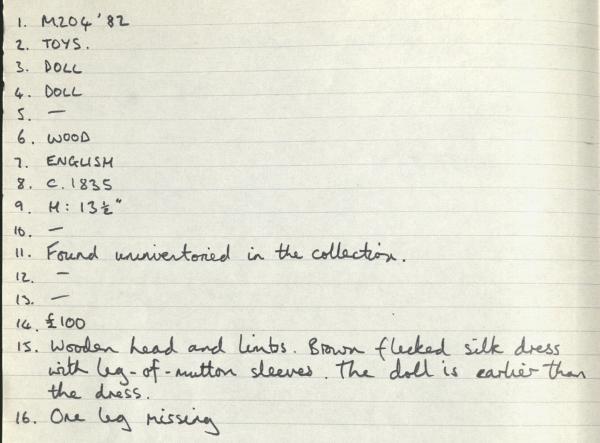 1. M204 '82
2. TOYS.
3. DOLL
4. DOLL
5. —
6. WOOD
7. ENGLISH
8. C. 1835
9. H: 13½"
10. —
11. Found uninventoried in the collection.
12. —
13. —
14. £100
15. Wooden head and limbs. Brown flecked silk dress
with leg-of-mutton sleeves. The doll is earlier than
the dress.
16. One leg missing